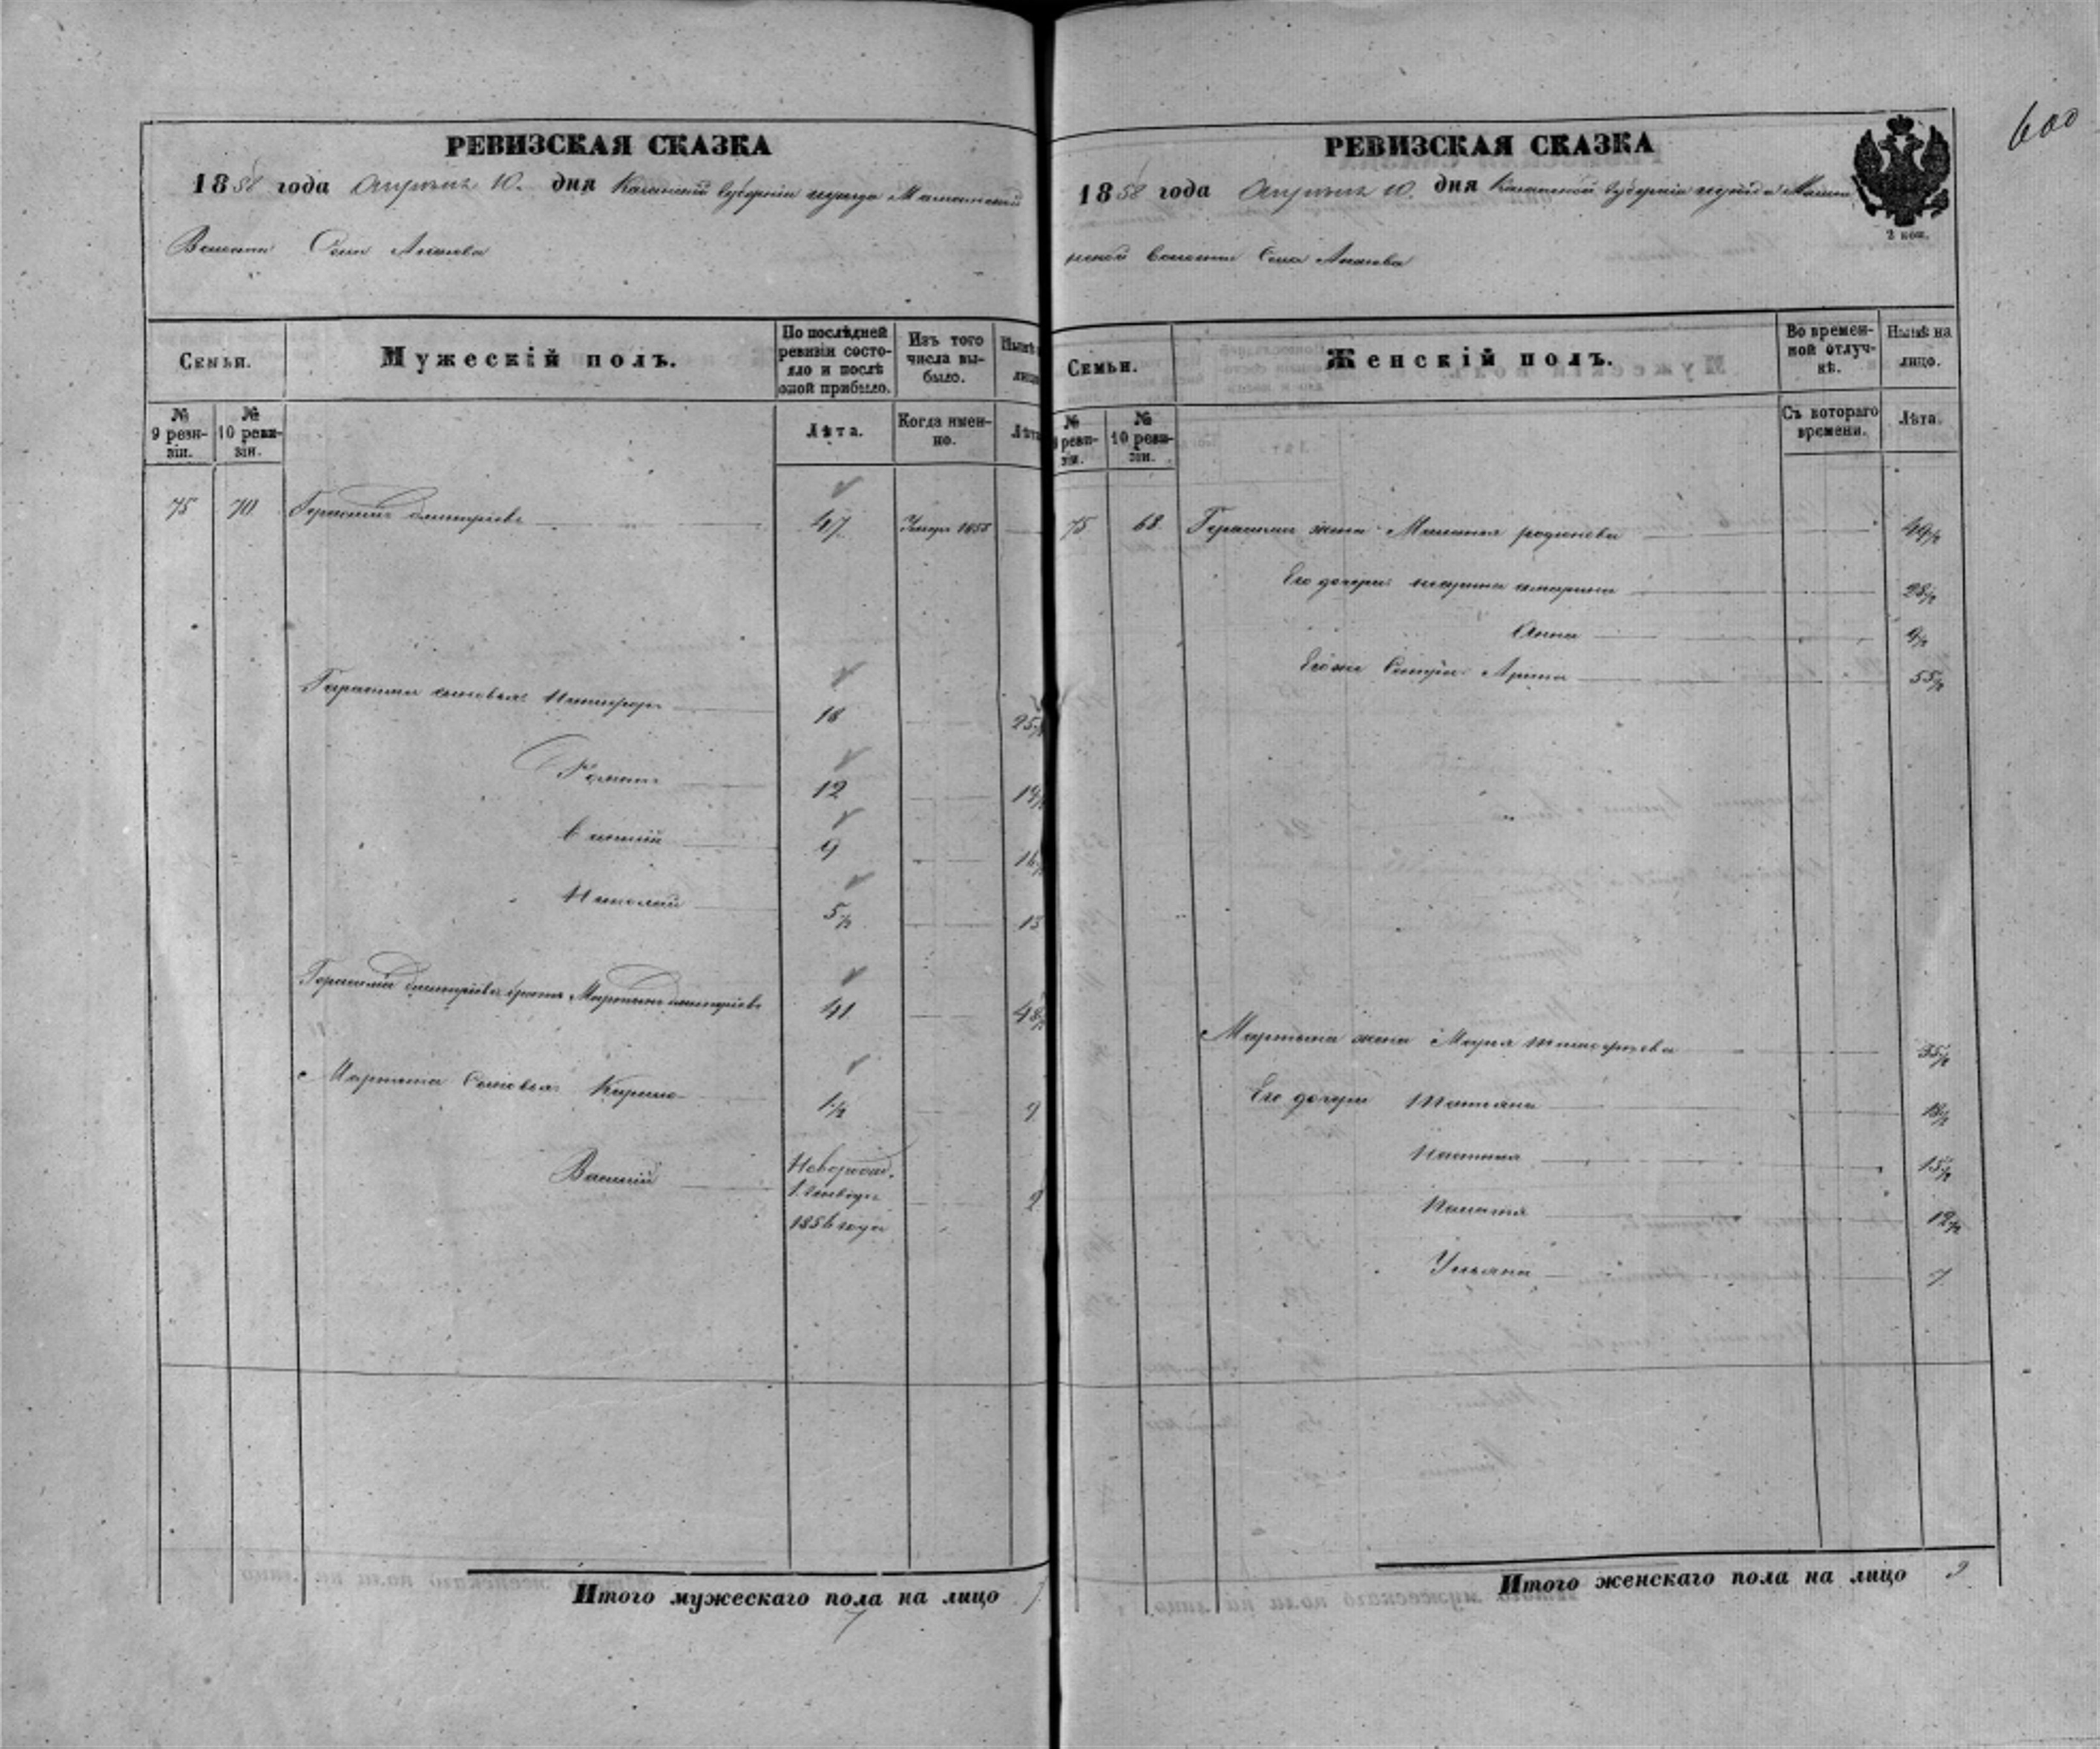 РЕВИЗСКАЯ СКАЗКА
1858 года Апреля 10. дня Казанской Губернии уезда Мамы
Волости Села
Семьи.
Мужескій полъ.
По послѣдней ревизіи состояло и послѣ оной прибыло.
Изъ того числа выбыло.
Нынѣ
лицо
№ 9 ревизіи.
№ 10 ревизіи.
Лѣта.
Когда именно.
Лѣта
75 70 Герасимъ Дмитріевъ 47 1855
Герасима сыновья Никифоръ 18 25
Романъ 12 19
9 16
Николай 5½ 13
Герасима Дмитріева братъ Мартынъ Дмитріевъ 41 48½
Мартына Сыновья Кирило 1½ 9
Василій Новорожд. 2
1856 года
Итого мужескаго пола на лицо 7
7
600
РЕВИЗСКАЯ СКАЗКА
1858 года Апреля 10. дня Казанской Губерніи уезда
2 коп.
волости Села
Семьи.
Женскій полъ.
Во временной отлучкѣ.
Нынѣ на лицо.
№ 9 ревизіи.
№ 10 ревизіи.
Съ котораго времени.
Лѣта.
75 68 Герасима жена Маланья Родионова 49½
Его дочери 28½
Анна 9½
Его же Арина 55½
Мартына жена Марья Тимофеева 35½
Его дочери Татьяна 18½
15½
12½
Ульяна 7
Итого женскаго пола на лицо 9